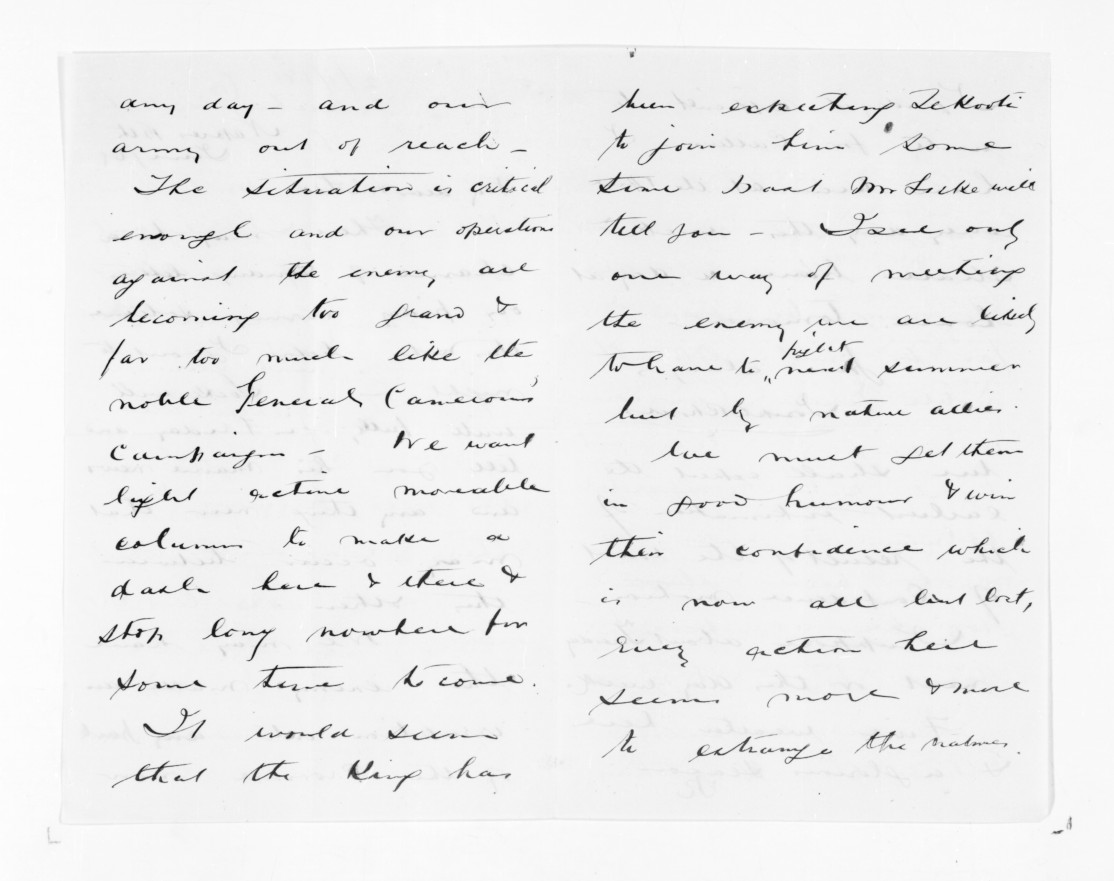 any day - and our
army out of reach -
The situation is critical
enough and our operations
against the enemy are
becoming too grand &
far too much like the
noble General Cameron's
Campaign - We want
light active moveable
columns to make a
dash here & there &
stop long nowhere for
some time to come.
It would seem
that the King has
been expecting Te Kooti
to join him some
time Isaat Mr Locke will
tell you - I see only
one way of meeting
the enemy we are likely
to have to fight next summer
but by native allies.
We must get them
in good humour & win
their confidence which
is now all but lost,
Every action here
seems more & more
to estrange the natives.